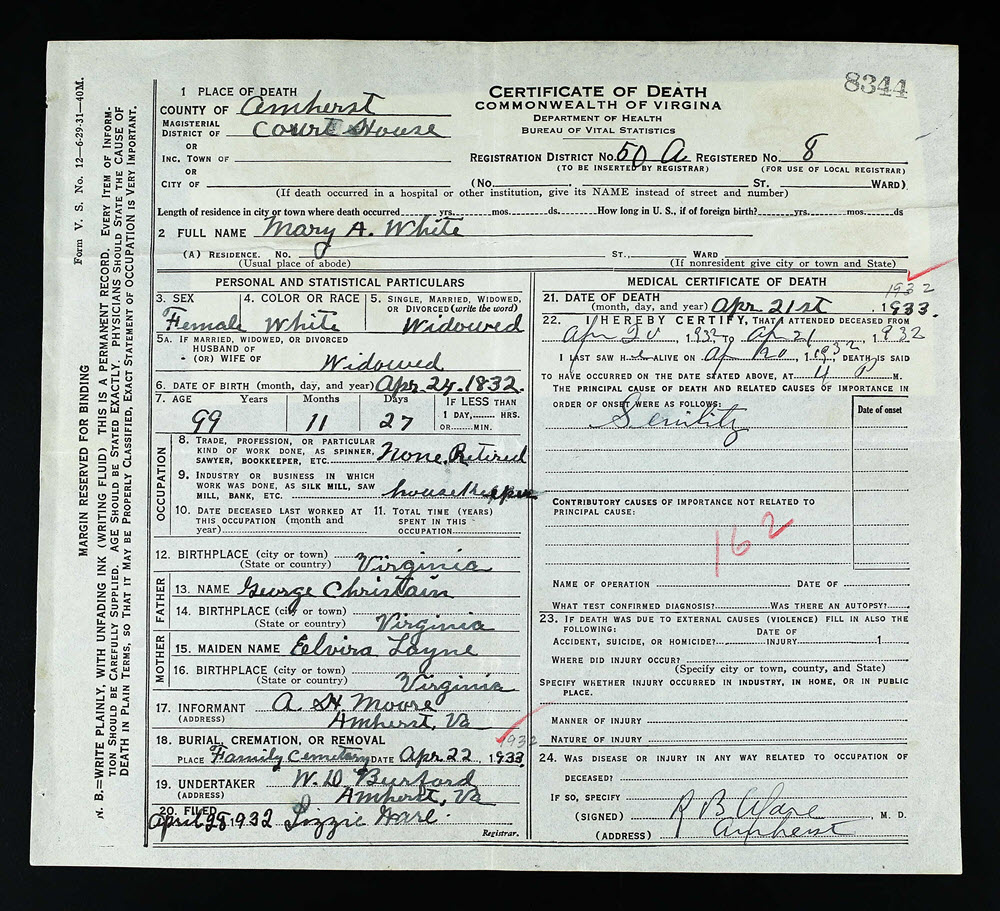 8344
1 PLACE OF DEATH
COUNTY OF Amherst
MAGISTERIAL DISTRICT OF Court House
OR
INC. TOWN OF
OR
CITY OF
CERTIFICATE OF DEATH
COMMONWEALTH OF VIRGINA
DEPARTMENT OF HEALTH
BUREAU OF VITAL STATISTICS
REGISTRATION DISTRICT NO. 50 A REGISTERED NO. 8
(TO BE INSERTED BY REGISTRAR) (FOR USE OF LOCAL REGISTRAR)
(No. ST. WARD)
(If death occurred in a hospital or other institution, give its NAME instead of street and number)
Length of residence in city or town where death occurred yrs. mos. ds. How long in U. S., if of foreign birth? yrs. mos. ds
2 FULL NAME Mary A. White
(A) RESIDENCE. No. ST., WARD
(Usual place of abode) (If nonresident give city or town and State)
PERSONAL AND STATISTICAL PARTICULARS
3. SEX 4. COLOR OR RACE 5. SINGLE, MARRIED, WIDOWED, OR DIVORCED (write the word)
Female White Widowed
5A. IF MARRIED, WIDOWED, OR DIVORCED
HUSBAND OF
(OR) WIFE OF Widowed
6. DATE OF BIRTH (month, day, and year) Apr. 24. 1832.
7. AGE Years Months Days IF LESS THAN
1 DAY, HRS.
OR MIN.
99 11 27
OCCUPATION
8. TRADE, PROFESSION, OR PARTICULAR
KIND OF WORK DONE, AS SPINNER,
SAWYER, BOOKKEEPER, ETC. None, Retired
9. INDUSTRY OR BUSINESS IN WHICH
WORK WAS DONE, AS SILK MILL, SAW
MILL, BANK, ETC. housekeeper
10. DATE DECEASED LAST WORKED AT THIS OCCUPATION (month and year)
11. TOTAL TIME (YEARS) SPENT IN THIS OCCUPATION
12. BIRTHPLACE (city or town)
(State or country) Virginia
FATHER
13. NAME George Christain
14. BIRTHPLACE (city or town)
(State or country) Virginia
MOTHER
15. MAIDEN NAME Elvira Layne
16. BIRTHPLACE (city or town)
(State or country) Virginia
17. INFORMANT A. H. Moore
(ADDRESS) Amherst, Va
18. BURIAL, CREMATION, OR REMOVAL 1932
PLACE Family Cemetery DATE Apr. 22 1933.
19. UNDERTAKER W. D. Burford
(ADDRESS) Amherst, Va
20. FILED April 28, 1932 Lizzie Ware.
Registrar.
MEDICAL CERTIFICATE OF DEATH
1932
21. DATE OF DEATH
(month, day, and year) Apr 21st , 1933.
22. I HEREBY CERTIFY, THAT I ATTENDED DECEASED FROM
Apr 20 , 1932 TO Apr 21 , 1932
I LAST SAW H er ALIVE ON Ap 20 , 1932 DEATH IS SAID
TO HAVE OCCURRED ON THE DATE STATED ABOVE, AT 4 P M.
THE PRINCIPAL CAUSE OF DEATH AND RELATED CAUSES OF IMPORTANCE IN
ORDER OF ONSET WERE AS FOLLOWS: Date of onset
Senility
CONTRIBUTORY CAUSES OF IMPORTANCE NOT RELATED TO
PRINCIPAL CAUSE:
162
NAME OF OPERATION DATE OF
WHAT TEST CONFIRMED DIAGNOSIS? WAS THERE AN AUTOPSY?
23. IF DEATH WAS DUE TO EXTERNAL CAUSES (VIOLENCE) FILL IN ALSO THE
FOLLOWING: DATE OF
ACCIDENT, SUICIDE, OR HOMICIDE? INJURY 1
WHERE DID INJURY OCCUR?
(Specify city or town, county, and State)
SPECIFY WHETHER INJURY OCCURRED IN INDUSTRY, IN HOME, OR IN PUBLIC
PLACE.
MANNER OF INJURY
NATURE OF INJURY
24. WAS DISEASE OR INJURY IN ANY WAY RELATED TO OCCUPATION OF
DECEASED?
IF SO, SPECIFY
(SIGNED) R B Ware , M. D.
(ADDRESS) Amherst
Form V. S. No. 12—6-29-31—40M.
MARGIN RESERVED FOR BINDING
N. B.=WRITE PLAINLY, WITH UNFADING INK (WRITING FLUID) THIS IS A PERMANENT RECORD. EVERY ITEM OF INFORM-
TION SHOULD BE CAREFULLY SUPPLIED. AGE SHOULD BE STATED EXACTLY. PHYSICIANS SHOULD STATE THE CAUSE OF
DEATH IN PLAIN TERMS, SO THAT IT MAY BE PROPERLY CLASSIFIED. EXACT STATEMENT OF OCCUPATION IS VERY IMPORTANT.